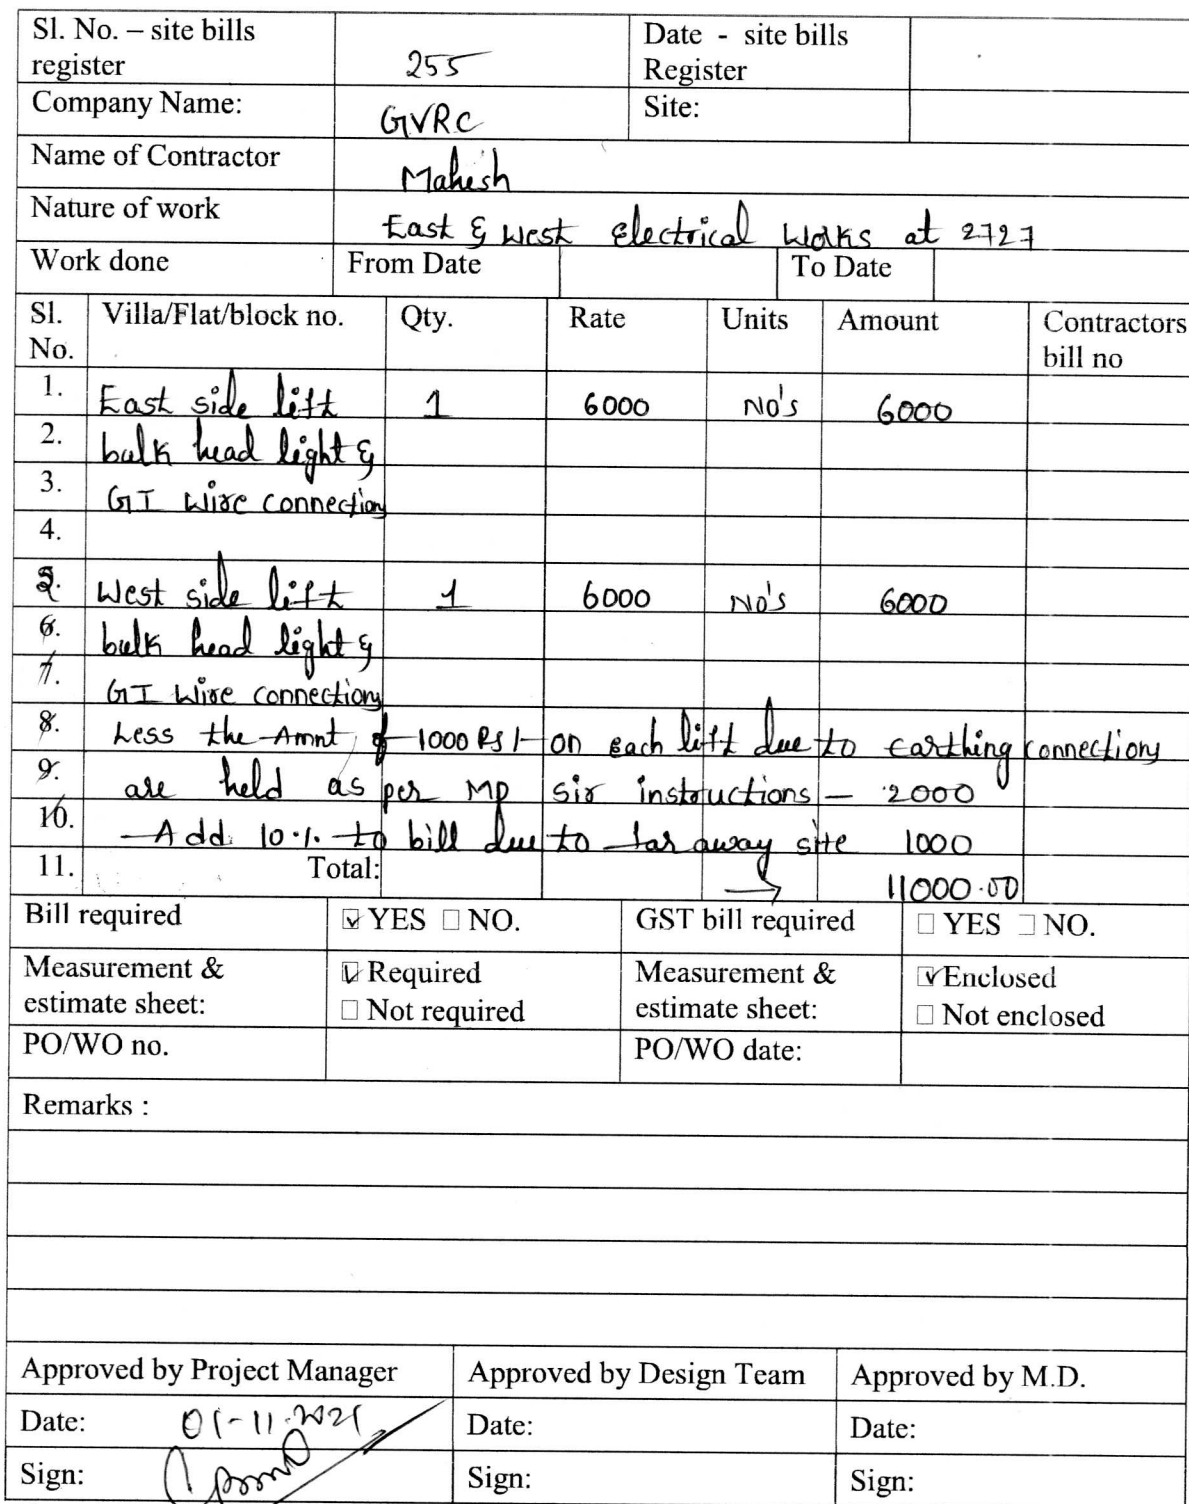 Sl. No. – site bills register 255 Date - site bills Register
Company Name: GVRC Site:
Name of Contractor Mahesh
Nature of work East & West Electrical Works at 2727
Work done From Date To Date
Sl. No. Villa/Flat/block no. Qty. Rate Units Amount Contractors bill no
1. East side lift 1 6000 No's 6000
2. bulk head light &
3. GI Wire connection
4.
2. West side lift 1 6000 No's 6000
6. bulk head light &
7. GI Wire connection
8. Less the Amnt of 1000 Rs/- on each lift due to earthing connection
9. are held as per MD sir instructions – 2000
10. Add 10% to bill due to far away site 1000
11. Total: → 11000.00
Bill required ☑ YES ☐ NO. GST bill required ☐ YES ☐ NO.
Measurement & estimate sheet: ☑ Required Measurement & estimate sheet: ☑ Enclosed
☐ Not required ☐ Not enclosed
PO/WO no. PO/WO date:
Remarks :
Approved by Project Manager Approved by Design Team Approved by M.D.
Date: 01-11-2021 Date: Date:
Sign: Sign: Sign: